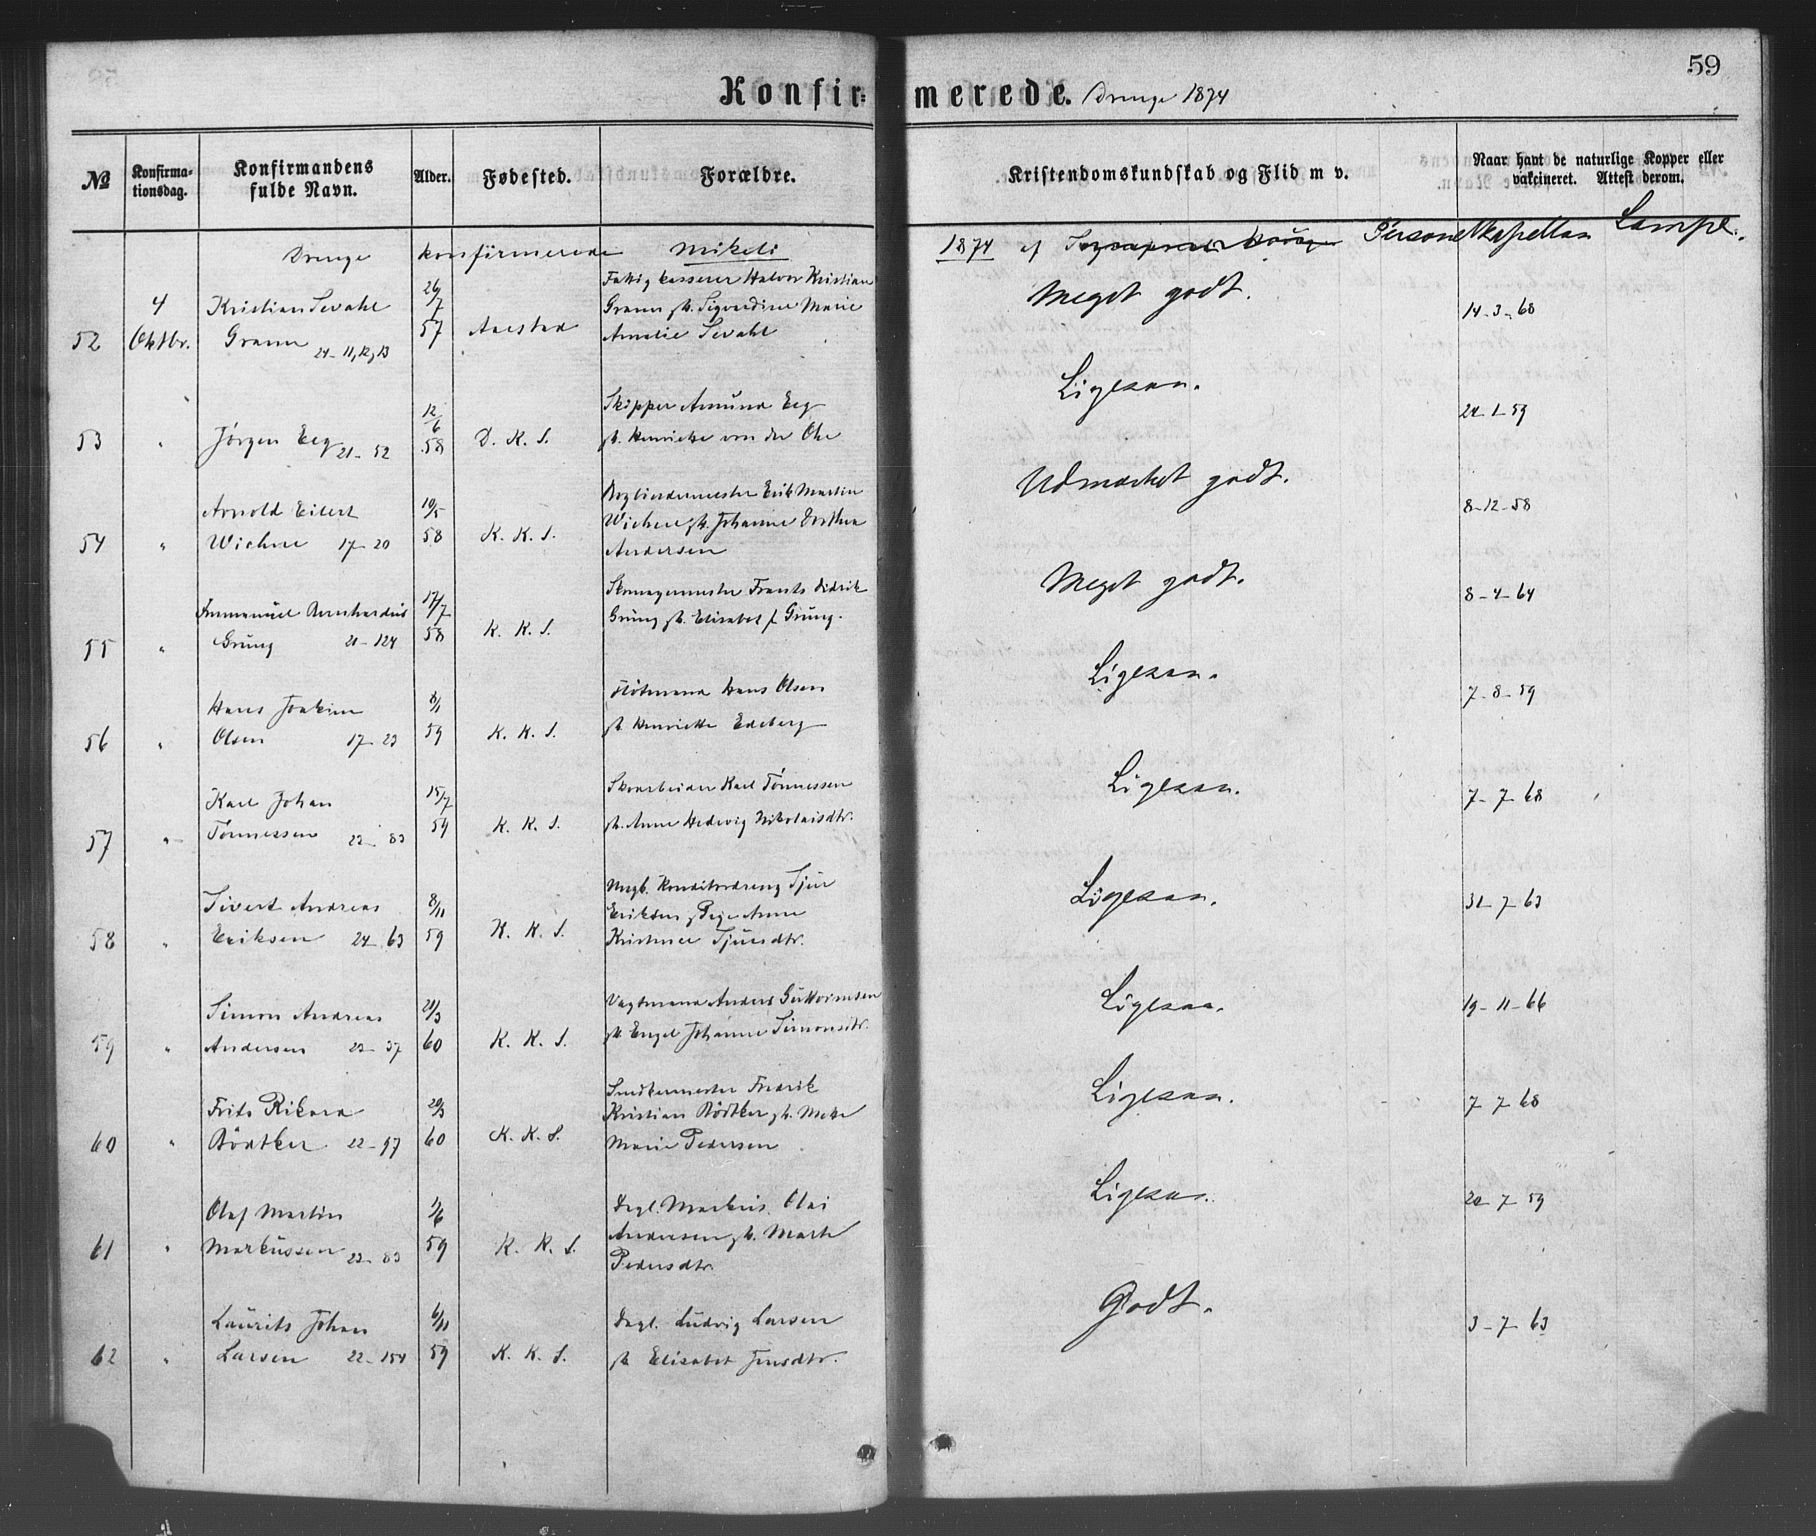 59
Konfirmerede. Drenge 1874
№
Konfirmationsdag.
Konfirmandens fulde Navn.
Alder.
Fødested.
Forældre.
Kristendomskundskab og Flid m v.
Naar havt de naturlige Kopper eller vakcineret. Attest derom.
Drenge konfirmerede Mikeli 1874 af Personelkapellan Lampe.
52 4 Oktbr. Kristian Sevahl Gram 24-11,12,13 26/7 57 Aarstad
Fattigkasserer Halvor Kristian
Gram Marie
Amalie Sevahl
Meget godt. 14-3-68
53 " Jørgen Eeg 21-52 12/6 58 D. K. S.
Skipper Amund Eeg
Henriette von der Ohe
Ligesaa. 21-1-59
54 " Arnold Eilert Wichne 17-20 10/5 58 K. K. S.
Bogbindermester Erik Martin
Wichne Johanne Dorthea
Andersen
Udmærket godt. 8-12-58
55 " Immanuel Bernhardus Grung 21-124 17/7 58 K. K. S.
Skomagermester Frants Didrik
Grung Elisabet f Grung.
Meget godt. 8-4-64
56 " Hans Joakim Olsen 17-23 8/1 59 K. K. S.
Hans Olsen
Henriette Edeberg
Ligesaa. 7-8-59
57 " Karl Johan Tönnessen 22-83 15/7 59 K. K. S.
Skoarbeider Karl Tönnessen
Anne Hedevig Nikolaisdtr.
Ligesaa. 7-7-68
58 " Sivert Andreas Eriksen 24-63 8/11 59 K. K. S.
Ungk. Konditordreng Sjur
Eriksen Pige Anne
Kristine Sjursdtr.
Ligesaa. 31-7-63
59 " Simon Andreas Andersen 22-37 21/3 60 K. K. S.
Vagtmand Anders Guttormsen
Engel Johanne Simonsdtr.
Ligesaa. 19-11-66
60 " Frits Rikard Bödtker 22-97 20/3 60 K. K. S.
Snedkermester Fredrik
Kristian Bödtker Mette
Marie Pedersen
Ligesaa. 7-7-68
61 " Olaf Martin Markussen 22-83 59 K. K. S.
Dagl. Markus Olai
Andersen Marte
Pedersdtr.
Ligesaa. 20-7-59
62 " Laurits Johan Larsen 22-154 6/11 59 K. K. S.
Dagl. Ludvig Larsen
Elisabet Jensdtr.
Godt. 3-7-63